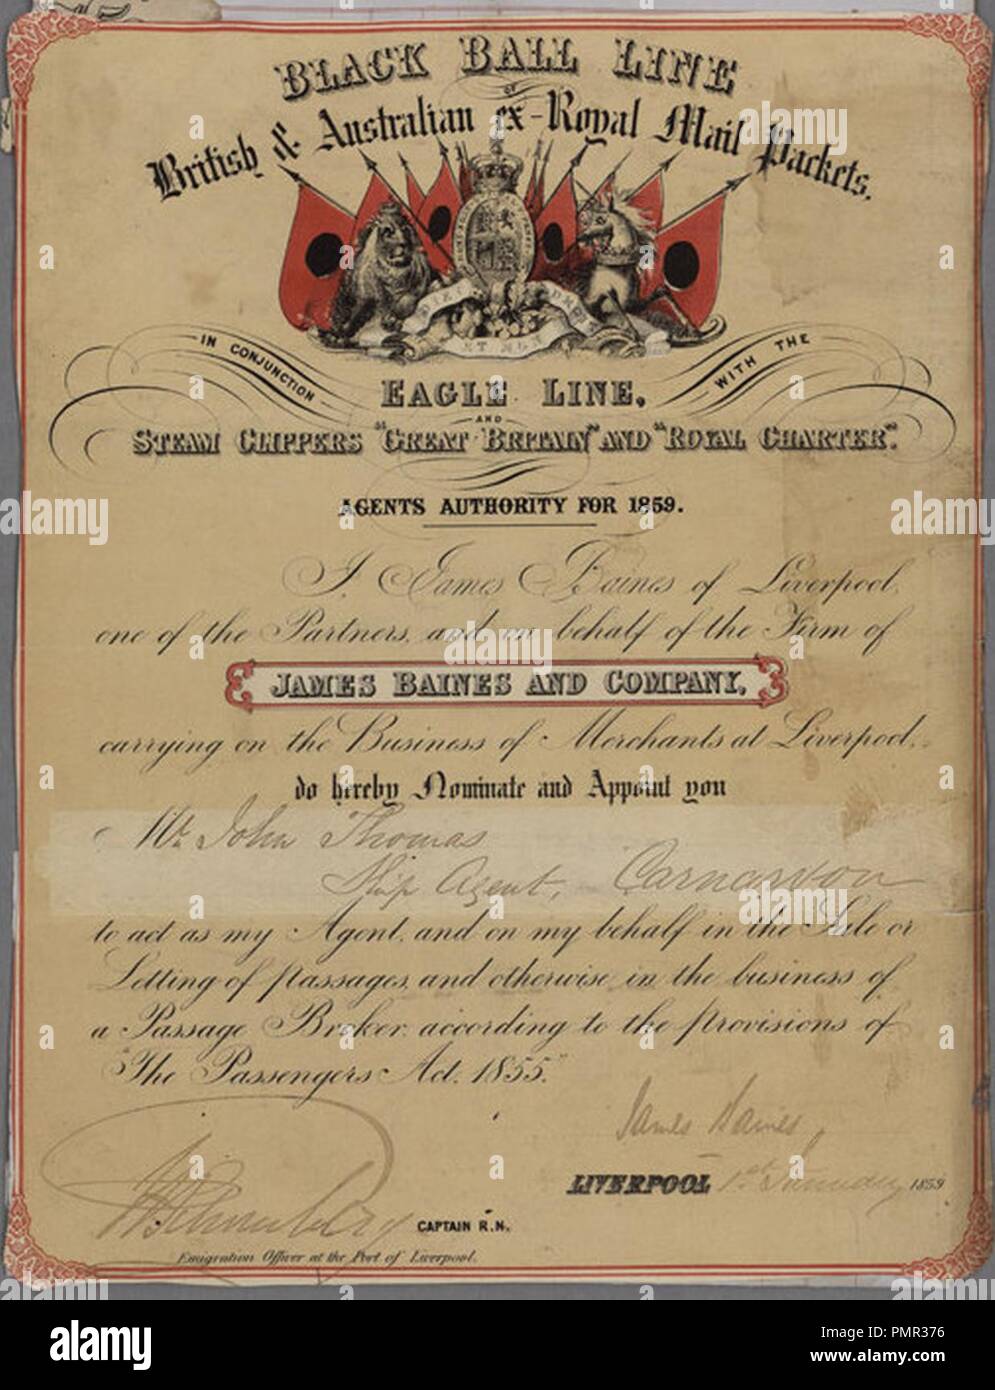 BLACK BALL LINE
OF
British & Australian ex-Royal Mail Packets.
DIEU ET MON
IN CONJUNCTION WITH THE
EAGLE LINE,
AND
STEAM CLIPPERS "GREAT BRITAIN" AND "ROYAL CHARTER".
AGENTS AUTHORITY FOR 1859.
I, James Baines of Liverpool,
one of the Partners, and on behalf of the Firm of
JAMES BAINES AND COMPANY,
carrying on the Business of Merchants at Liverpool,
do hereby Nominate and Appoint you
Mr John Thomas
Ship Agent, Carnarvon
to act as my Agent, and on my behalf in the Sale or
Letting of passages, and otherwise in the business of
a Passage Broker, according to the provisions of
"The Passengers Act, 1855."
James Baines
LIVERPOOL 1st January 1859
CAPTAIN R.N.
Emigration Officer at the Port of Liverpool.
alamy
Image ID: PMR376
www.alamy.com